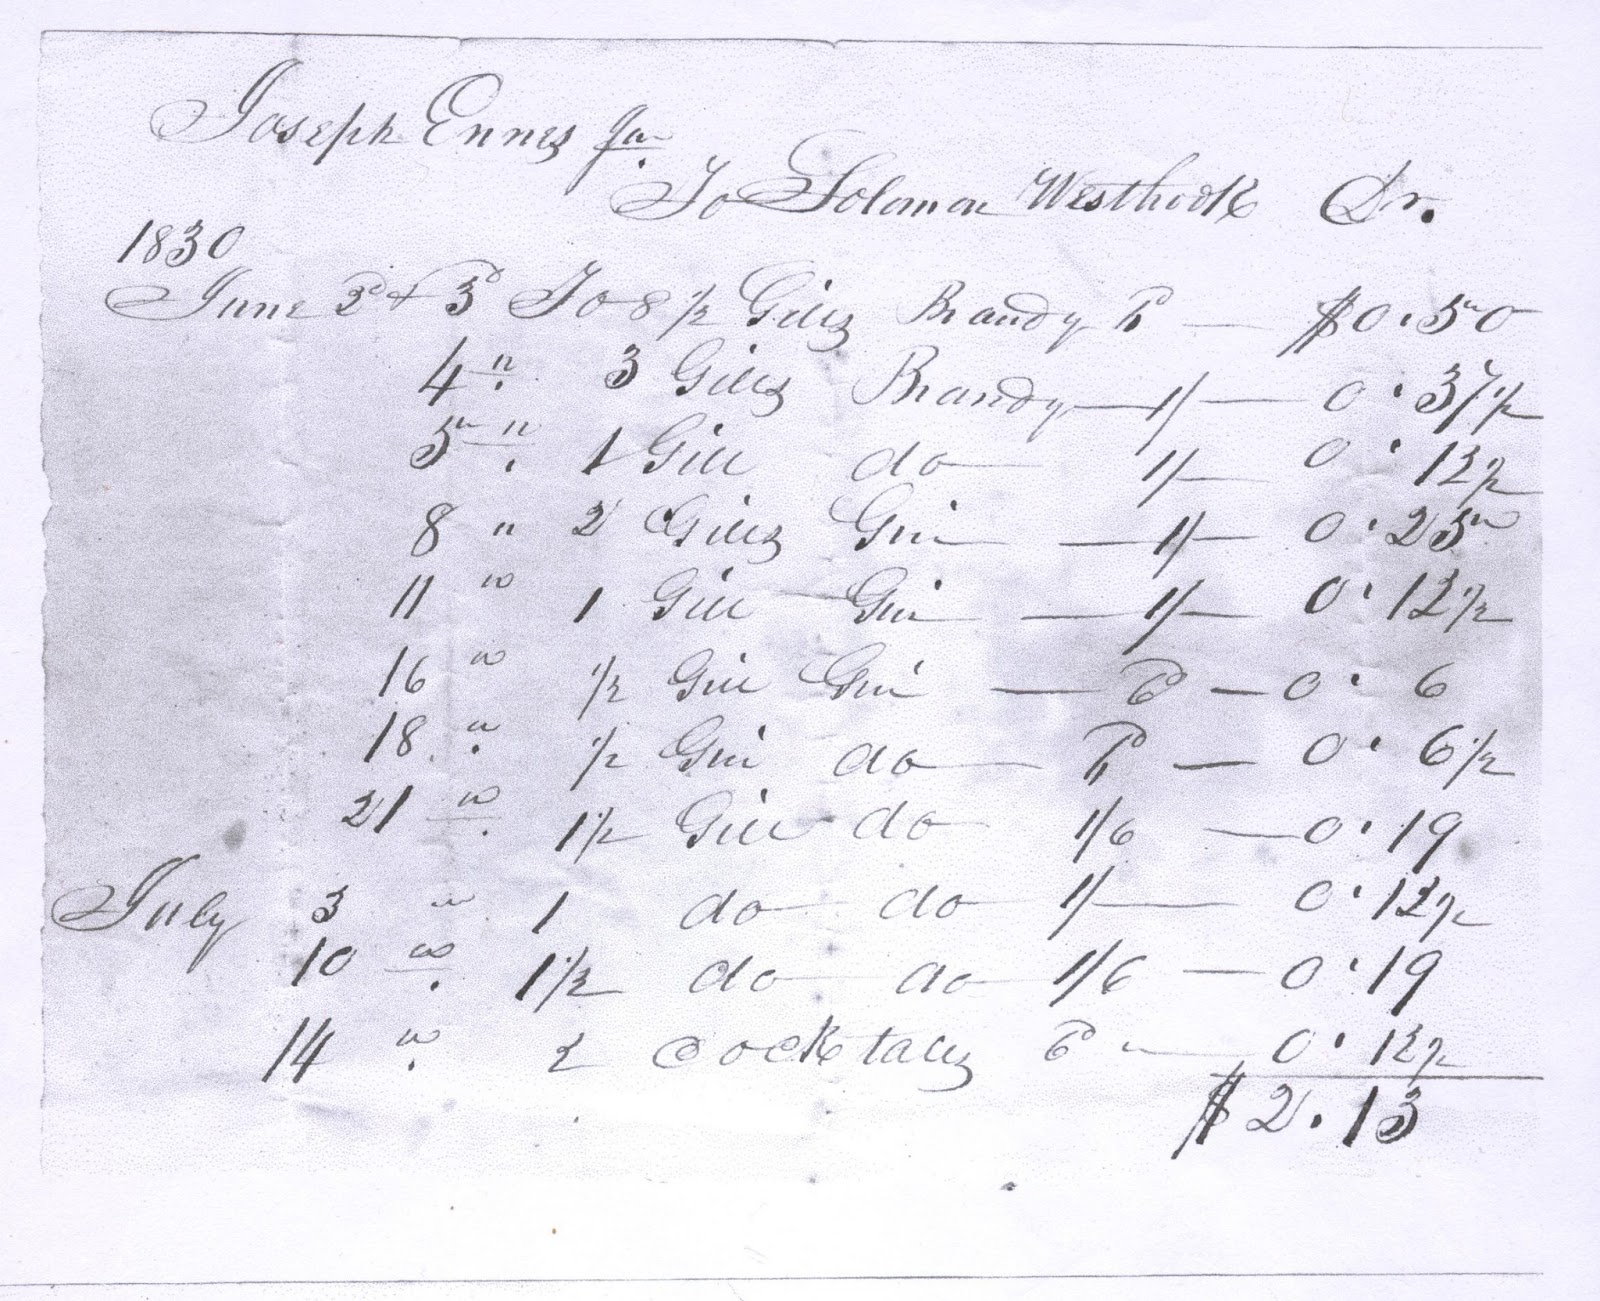 Joseph Ennes Jr.
To Solomon Westbrook Dr.
1830
June 2d & 3d To 8 1/2 Gills Brandy 6d — $0.50
4 " 3 Gills Brandy — 1/ — 0.37 1/2
5 " 1 Gill do 1/ — 0.12 1/2
8 " 2 Gills Gin — 1/ — 0.25
11 " 1 Gill Gin — 1/ — 0.12 1/2
16 " 1/2 Gill Gin — 6d — 0.6
18 " 1/2 Gill do — 6d — 0.6 1/2
21 " 1 1/2 Gill do 1/6 — 0.19
July 3 " 1 do do 1/ — 0.12 1/2
10 " 1 1/2 do do 1/6 — 0.19
14 " 2 Cocktails 6d — 0.12 1/2
$2.13